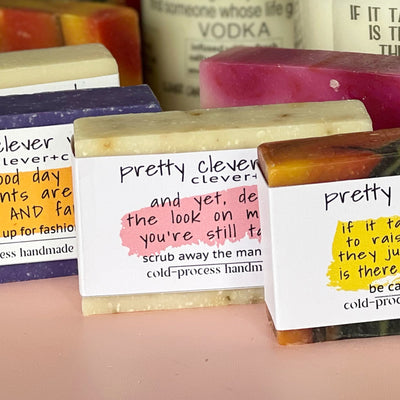 find someone whose life g
VODKA
IF IT TA
IS T
THE
clever
clever+c
ood day
nts are
AND fa
up for fashio
cess handmade
pretty clever
clever+
and yet, de
the look on m
you're still ta
scrub away the man
cold-process handm
pretty
if it ta
to rais
they ju
is there
be ca
cold-proc